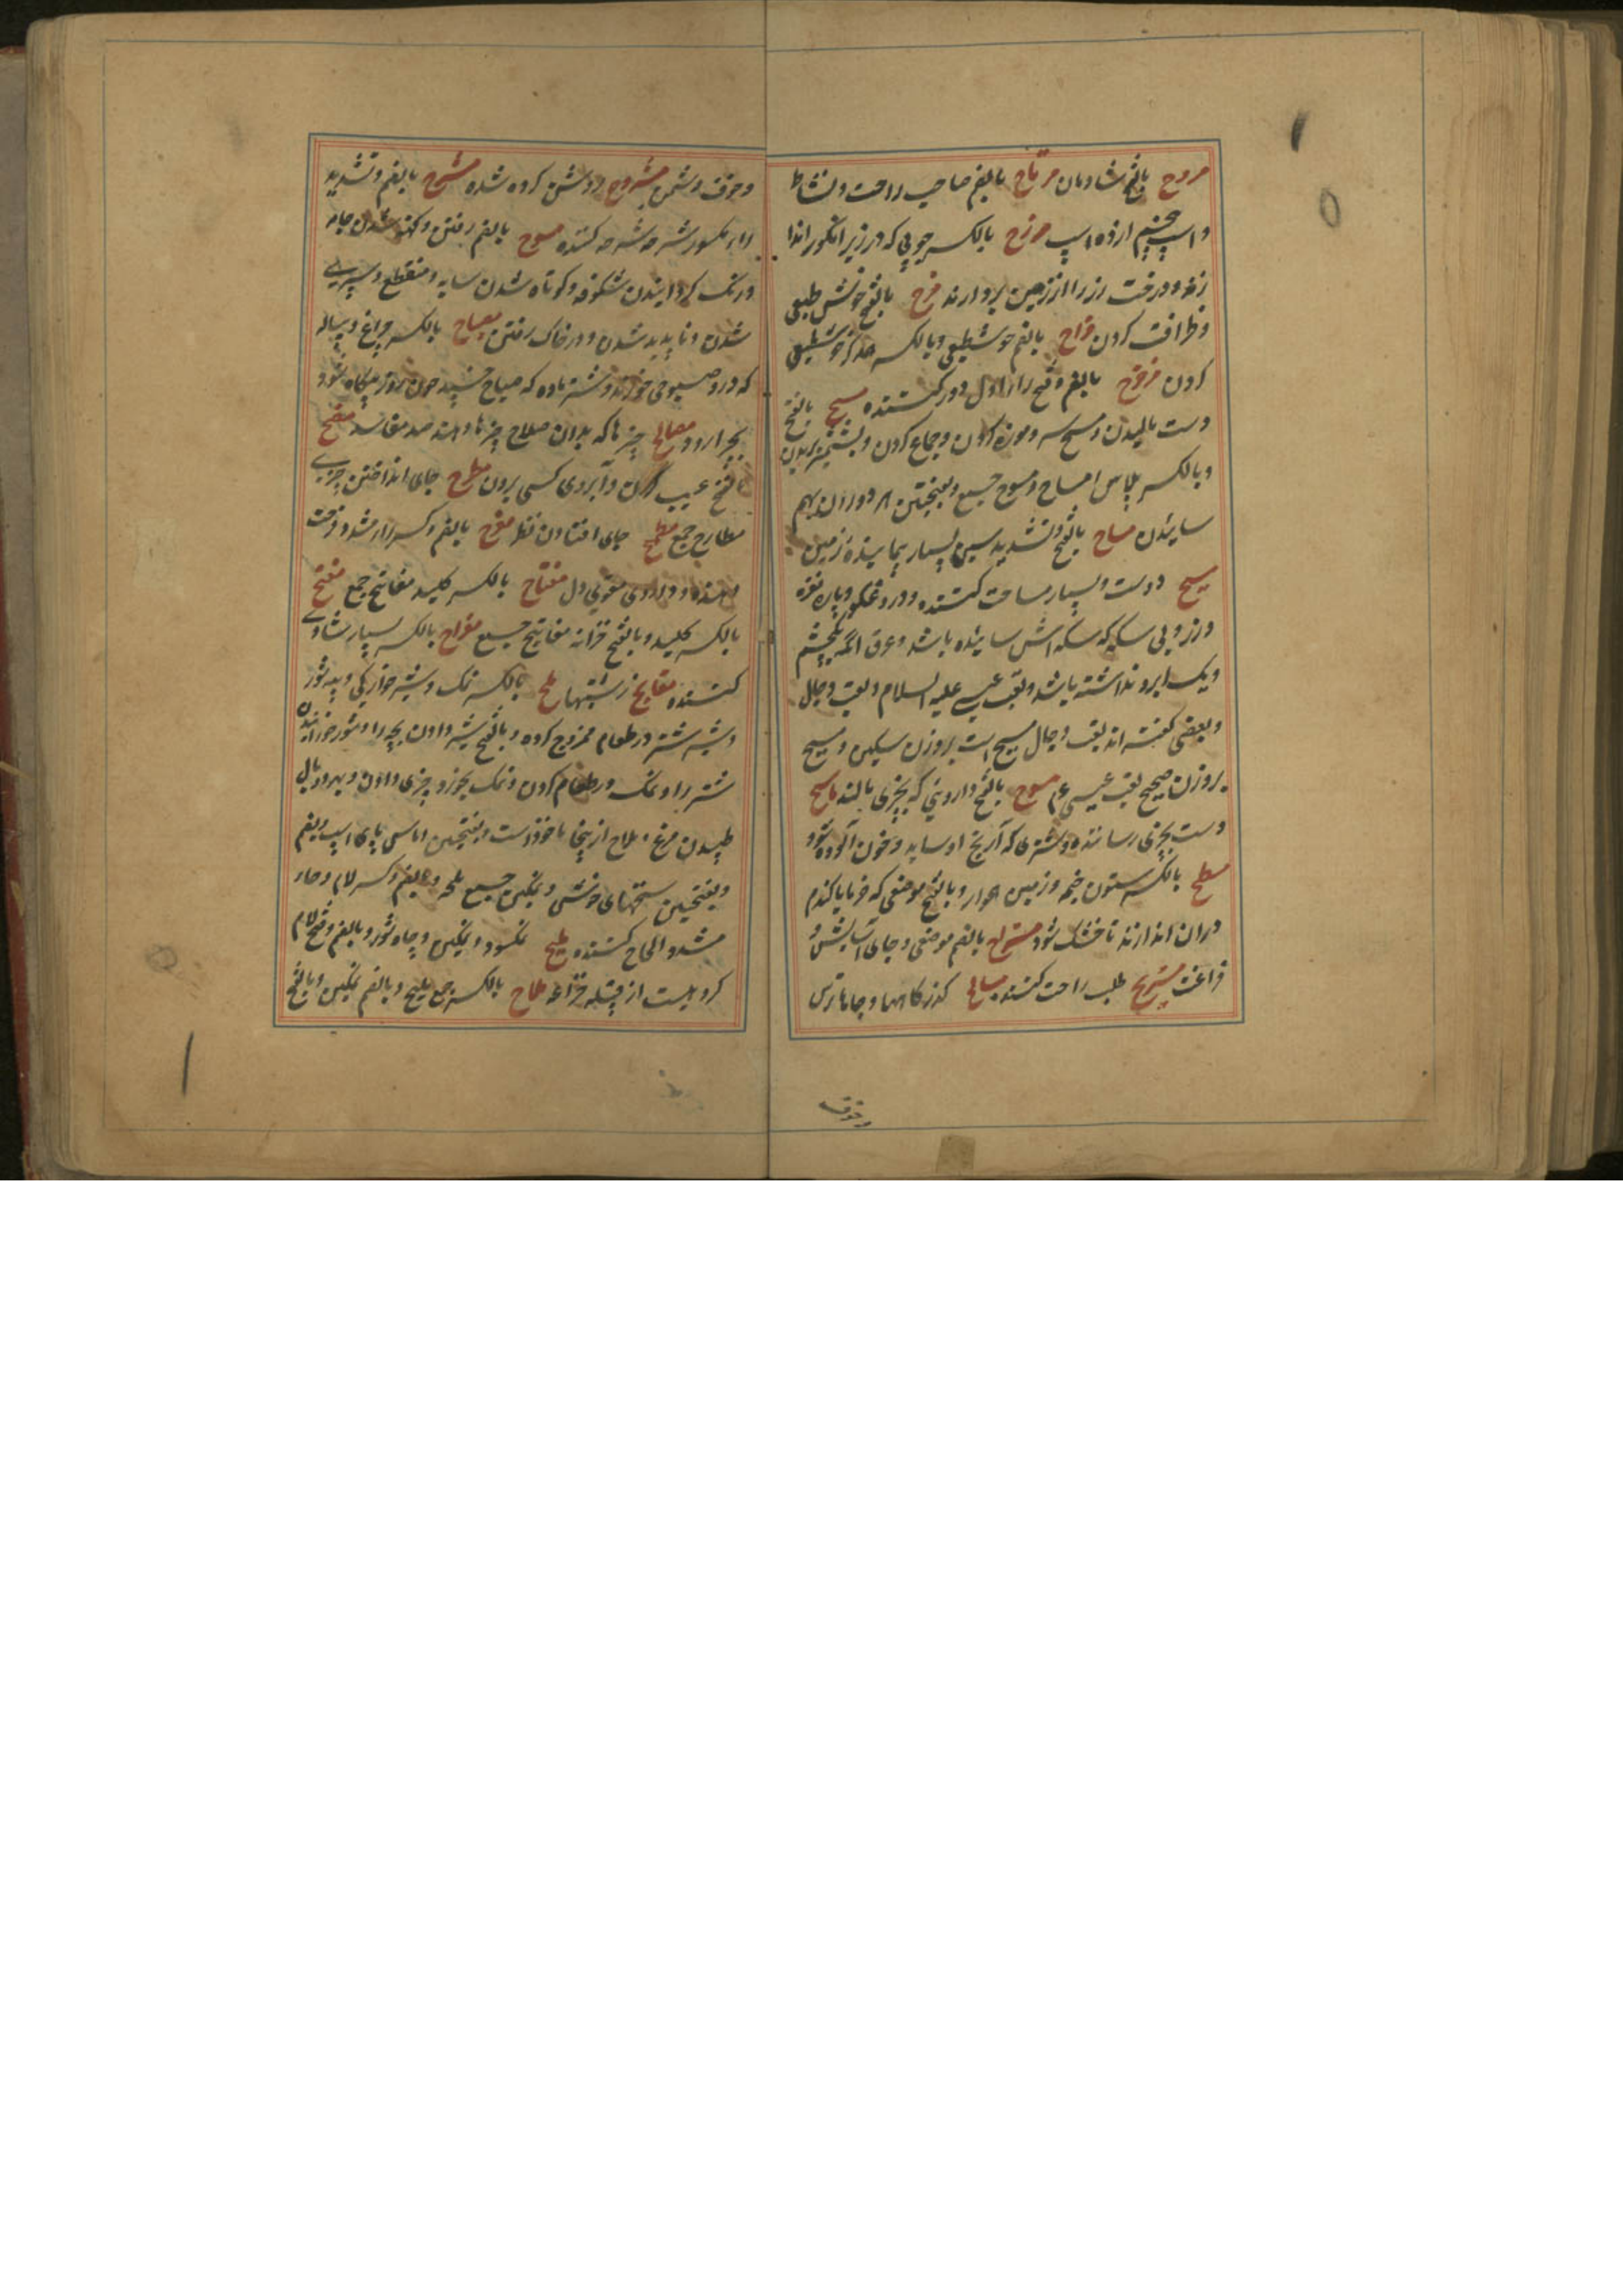 مروح بالفتح شادمان مرتاح بالضم صاحب راحت و نشاط
و اسپ پنجم از ده اسپ مرزح بالکسر چوبی که در زیر انگور اندا
زند و درخت رز را از زمین بردارند مزح بالفتح خوش طبعی
و ظرافت کردن مزاح بالضم خوشطبعی و بالکسر خوشطبعی
کردن مزحزح بالضم و فتح زاء اول دور کننده مسح بالفتح
دست مالیدن و مسح سر و موزه کردن و جماع کردن و بشمشیر بریدن
و بالکسر پلاس امساح و مسوح جمع و بفتحتین هر دو ران بهم
سائیدن مساح بالفتح و تشدید سین بسیار پیماینده زمین
مسیح دوست و بسیار مساحت کننده و دروغگوی و پاره نقره
و زر و بی سکه که سکه اش سائیده باشد و عرق آنکه یکچشم
و یک ابرو نداشته باشد و لقب عیسی علیه السلام و لقب دجال
و بعضی گفته اند لقب دجال مسیح است بروزن سکین و مسیح
بروزن صحیح لقب عیسی عم مسوح بالفتح دارویی که بچیزی بالند ماسح
دست بچیزی رساننده و شتری که آرنج او ساید و خون آلوده شود
مسطح بالکسر ستون خیمه و زمین هموار و بالفتح موضعی که خرما یا گندم
دران اندازند تا خشک شود مستراح بالضم موضعی و جای آسایش و
فراغت مستریح طلب راحت کننده مسالح گذرگاهها و جاهای ترس
و خوف
و خوف دشمن مشروح روشن کرده شده مشرح بالضم و تشدید
راء مکسور شرحه شرحه کننده مصوح بالضم رفتن و کهنه شدن جامه
و رنگ گردانیدن شکوفه و کوتاه شدن سایه و منقطع و سپری
شدن و ناپدید شدن و در خاک رفتن مصباح بالکسر چراغ و پیاله
که درو صبوحی خورند و شتر ماده که صباح خسپد چون روز بیگاه شود
بچرا رود مصالح چیزها که بدان صلاح چیزها باشد ضد مفاسد مفضح
بالفتح عیب کردن و آبروی کسی بردن مطرح جای انداختن چیزی
مطارح جمع مطمح جای افتادن نظر مفرح بالضم و کسر راء مشدد فرحت
دهنده و داروی مقوی دل مفتاح بالکسر کلید مفاتیح جمع مفتح
بالکسر کلید و بالفتح خزانه مفاتیح جمع مفراح بالکسر بسیار شادی
کننده مقابح زشتیها ملح بالکسر نمک و شیر خوارگی و پیه شور
و شیر شتر در طعام ممزوج کرده و بالفتح شیر دادن بچه را و شور خورانیدن
شتر را و نمک در طعام کردن و نمک بچیز و چیزی دادن و بهر دو بال
طپیدن مرغ ملاح ازینجا ماخوذست و بفتحتین اماس پای اسپ و بضم
و بفتحتین سخنهای خوش و نمکین جمع ملحه و بالضم و کسر لام و حاء
مشدد الحاح کننده ملیح نمکسود و نمکین و چاه شور و بالضم و فتح لام
گروهیست از قبیله خزاعه ملاح بالکسر جمع ملیح و بالضم نمکین و بالفتح